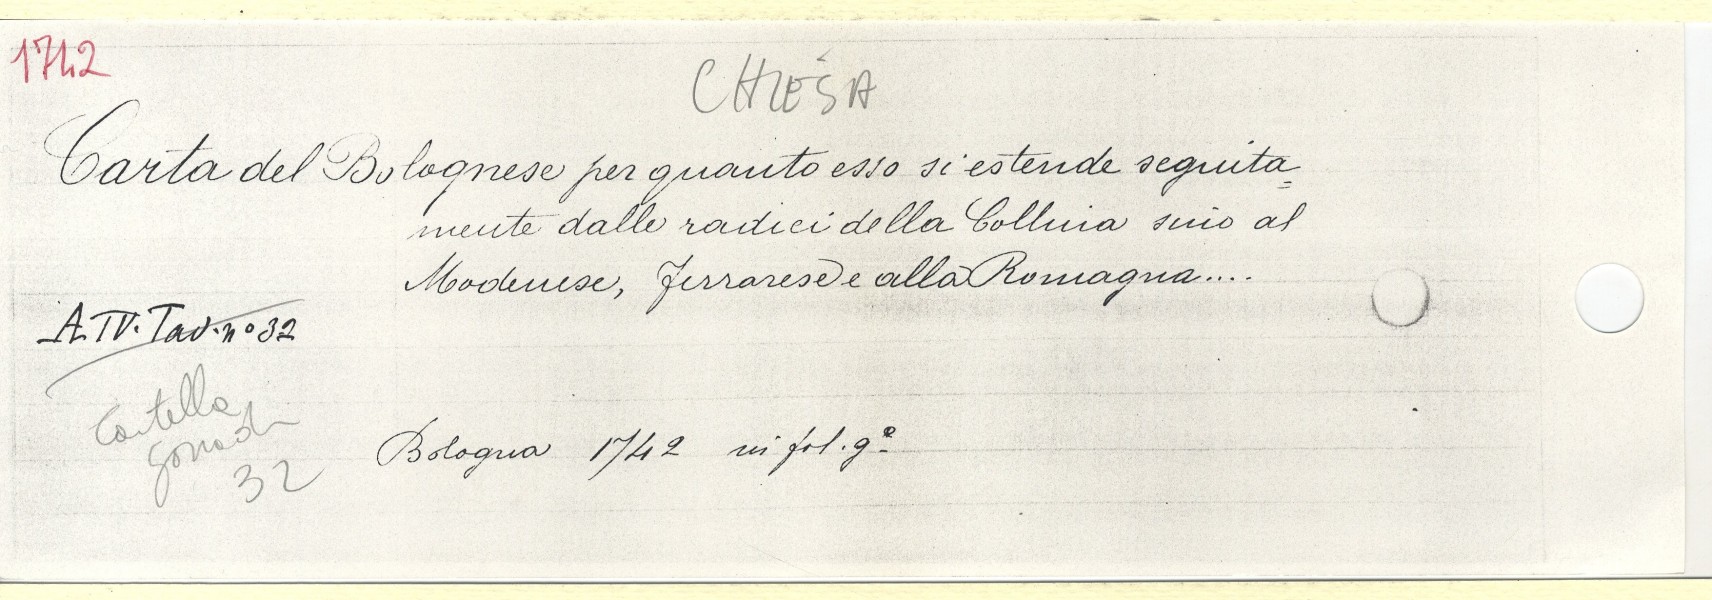 1742
CHIESA
Carta del Bolognese per quanto esso si estende seguita=
mente dalle radici della Collina sino al
Modenese, Ferrarese e alla Romagna....
A. IV. Tav. nº 32
Cartella
32
Bologna 1742 in fol. gº